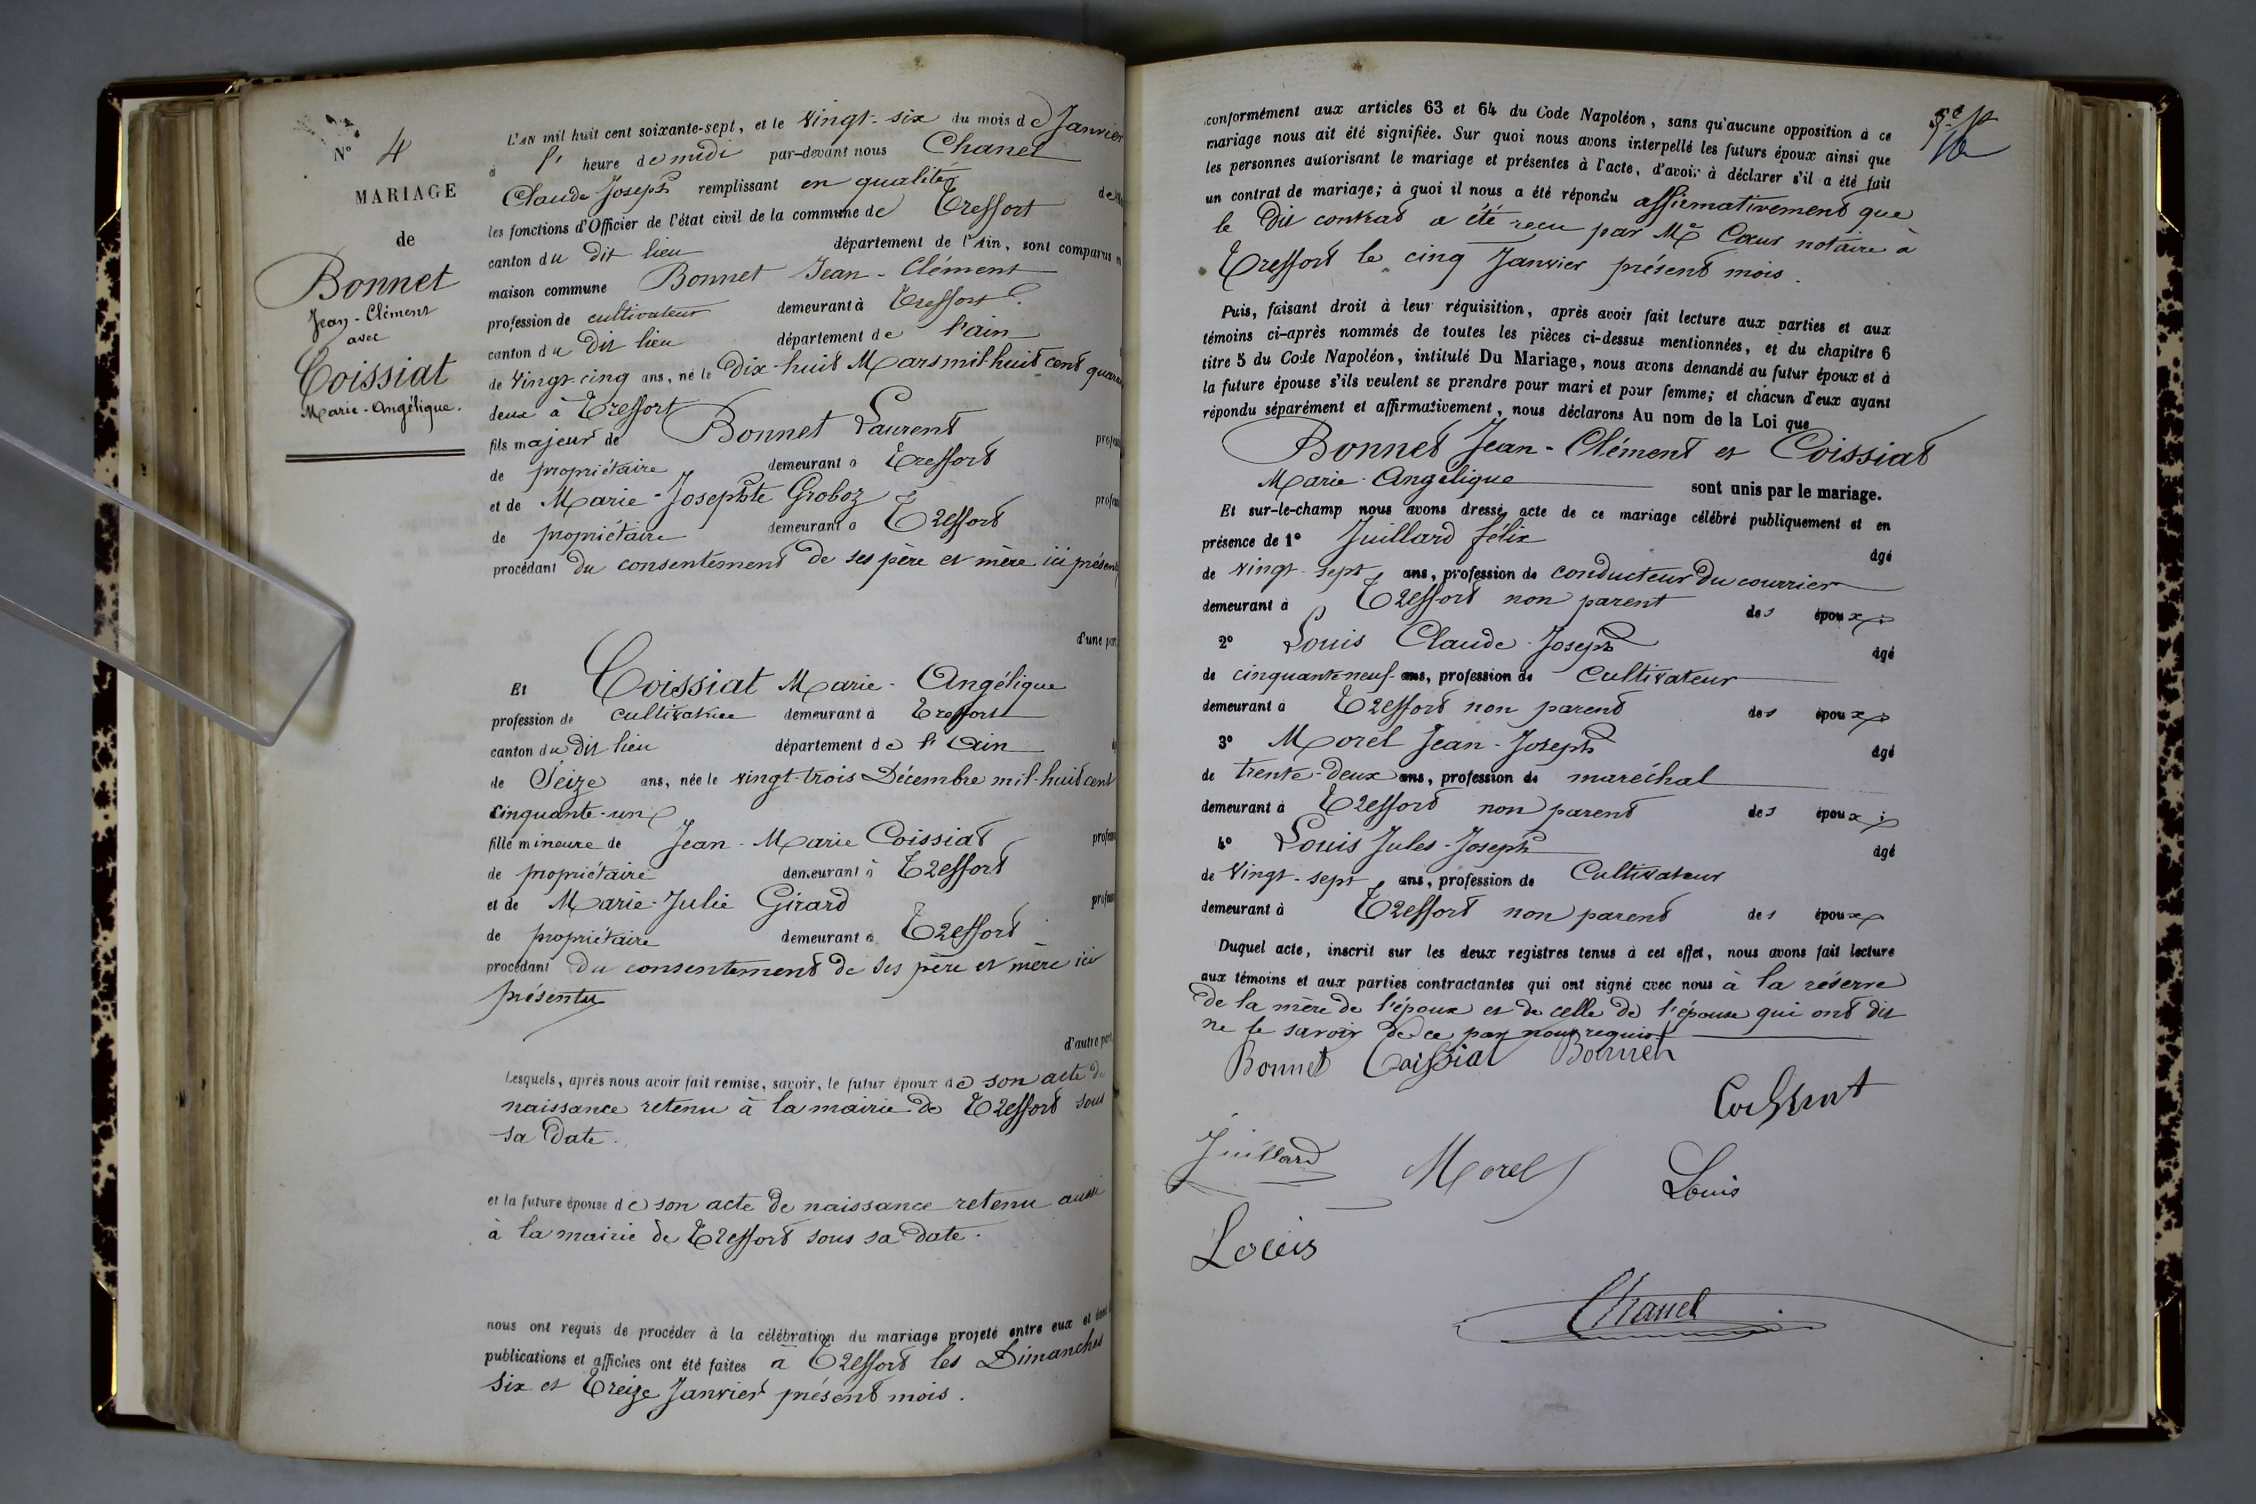 N° 4
MARIAGE
de
Bonnet
Jean-Clément
avec
Coissiat
Marie-Angélique.
L'AN mil huit cent soixante-sept, et le vingt-six du mois de Janvier
à l' heure de midi par-devant nous Chanel
Claude Joseph remplissant en qualité
les fonctions d'Officier de l'état civil de la commune de Treffort
canton du dit lieu département de l'Ain, sont comparus en
maison commune Bonnet Jean-Clément
profession de cultivateur demeurant à Treffort
canton du dit lieu département de l'ain
de vingt-cinq ans, né le Dix-huit Mars mil-huit cent
deux à Treffort
fils majeur de Bonnet Laurent
de propriétaire demeurant à Treffort
et de Marie-Josephte Groboz
de propriétaire demeurant à Treffort
procédant du consentement de ses père et mère ici présents
d'une part
Et Coissiat Marie-Angélique
profession de cultivatrice demeurant à Treffort
canton du dit lieu département de l'Ain
de Seize ans, née le vingt-trois Décembre mil-huit cent
cinquante-un
fille mineure de Jean-Marie Coissiat
de propriétaire demeurant à Treffort
et de Marie-Julie Girard
de propriétaire demeurant à Treffort
procédant du consentement de ses père et mère ici
présents
d'autre part,
Lesquels, après nous avoir fait remise, savoir, le futur époux de son acte de
naissance retenu à la mairie de Treffort sous
sa date.
et la future épouse de son acte de naissance retenu aussi
à la mairie de Treffort sous sa date.
nous ont requis de procéder à la célébration du mariage projeté entre eux et dont
publications et affiches ont été faites à Treffort les Dimanches
six et Treize Janvier présent mois.
conformément aux articles 63 et 64 du Code Napoléon, sans qu'aucune opposition à ce
mariage nous ait été signifiée. Sur quoi nous avons interpellé les futurs époux ainsi que
les personnes autorisant le mariage et présentes à l'acte, d'avoir à déclarer s'il a été fait
un contrat de mariage; à quoi il nous a été répondu affirmativement que
le dit contrat a été reçu par Me Cœur notaire à
Treffort le cinq Janvier présent mois.
Puis, faisant droit à leur réquisition, après avoir fait lecture aux parties et aux
témoins ci-après nommés de toutes les pièces ci-dessus mentionnées, et du chapitre 6
titre 5 du Code Napoléon, intitulé Du Mariage, nous avons demandé au futur époux et à
la future épouse s'ils veulent se prendre pour mari et pour femme; et chacun d'eux ayant
répondu séparément et affirmativement, nous déclarons Au nom de la Loi que
Bonnet Jean-Clément et Coissiat
Marie-Angélique sont unis par le mariage.
Et sur-le-champ nous avons dressé acte de ce mariage célébré publiquement et en
présence de 1° Juillard félix âgé
de vingt-sept ans, profession de conducteur du courrier
demeurant à Treffort non parent des époux
2° Louis Claude-Joseph âgé
de cinquante-neuf ans, profession de Cultivateur
demeurant à Treffort non parent des époux
3° Morel Jean-Joseph âgé
de trente-deux ans, profession de maréchal
demeurant à Treffort non parent des époux;
4° Louis Jules-Joseph âgé
de vingt-sept ans, profession de Cultivateur
demeurant à Treffort non parent des époux
Duquel acte, inscrit sur les deux registres tenus à cet effet, nous avons fait lecture
aux témoins et aux parties contractantes qui ont signé avec nous à la réserve
de la mère de l'époux et de celle de l'épouse qui ont dit
ne le savoir de ce par nous requis
Bonnet Coissiat Bonnet
Coissiat
Juillard Morel Louis
Louis
Chanel